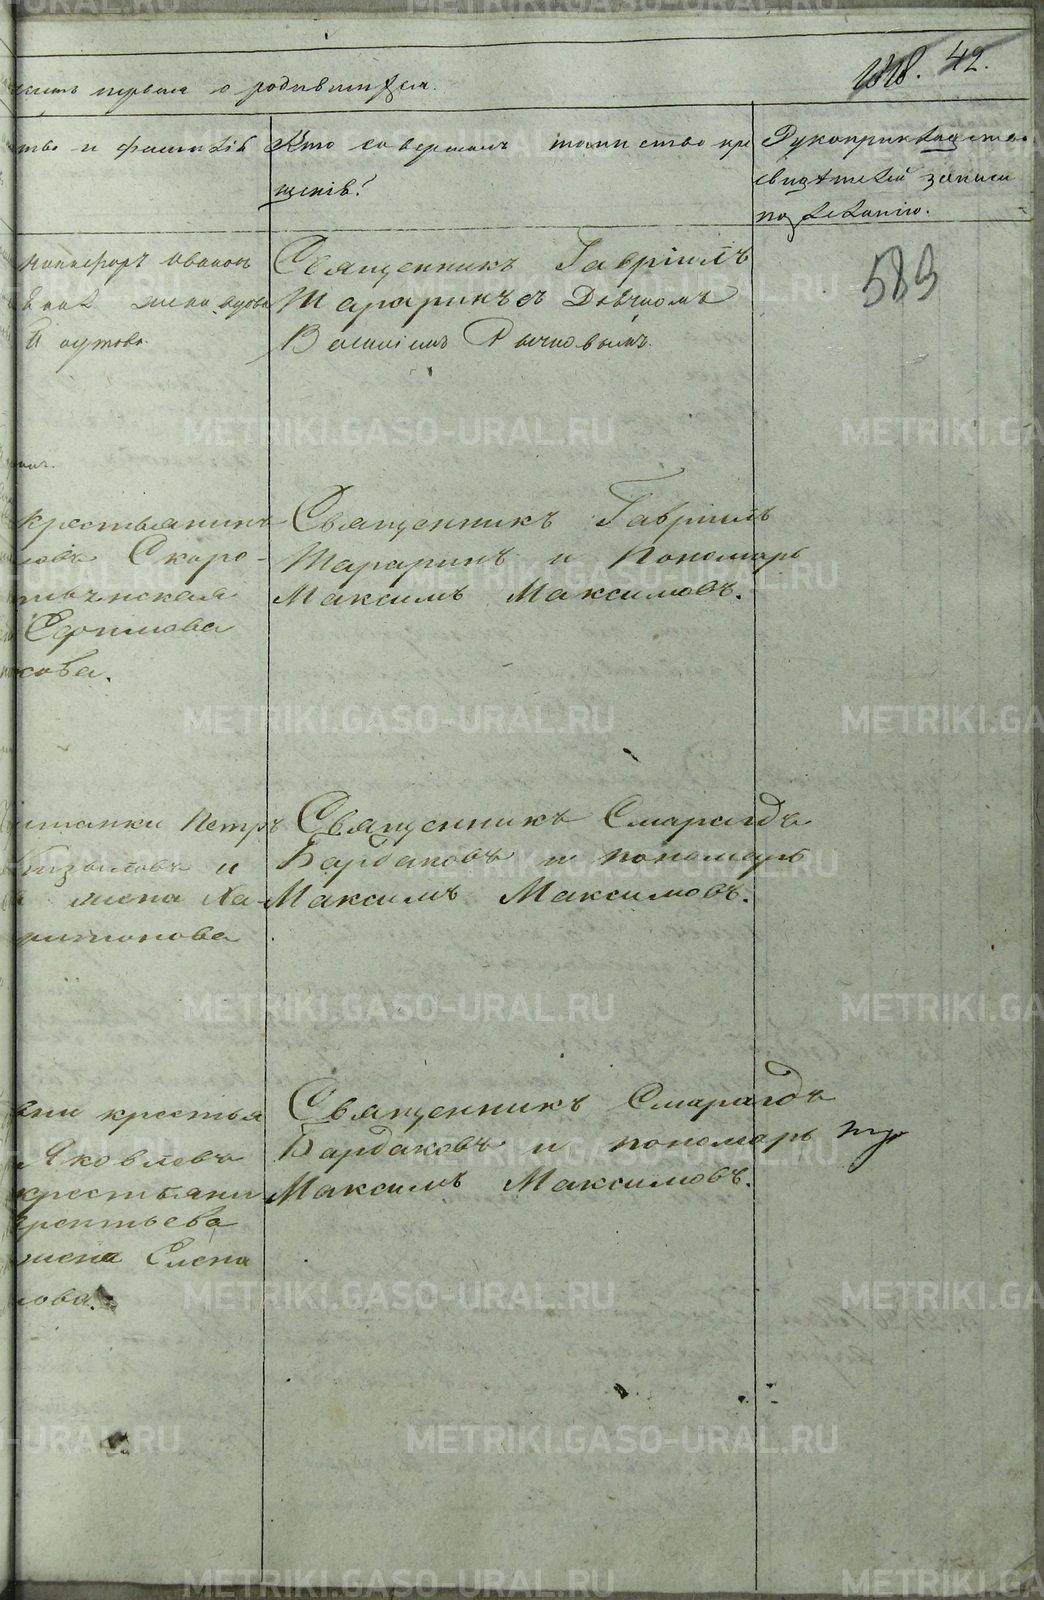 42.
часть первая о родившихся.
тво и фамилія
Кто совершалъ таинство кре
щенія?
Рукоприкладство
свидѣтелей записи
по желанію.
589
Никифоръ Иванов
жена вдова
Священникъ Гавріилъ
Шараринъ съ Дьячкомъ
Василіемъ Рычковымъ.
крестьянинъ
ловъ Скоро-
Ефимова
сова.
Священникъ Гавріилъ
Шараринъ и Пономарь
Максимъ Максимовъ.
Петръ
и
жена Ха-
ритонова
Священникъ Смарагдъ
Бардаковъ и пономарь
Максимъ Максимовъ.
крестья
Яковлевъ
крестьяни
рентьева
жена Елена
лова.
Священникъ Смарагдъ
Бардаковъ и пономарь
Максимъ Максимовъ.
METRIKI.GASO-URAL.RU